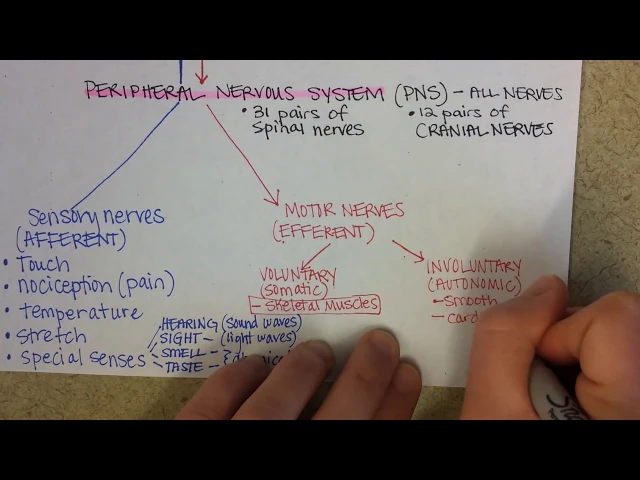 PERIPHERAL NERVOUS SYSTEM (PNS) - ALL NERVES
• 31 pairs of
spinal nerves
• 12 pairs of
CRANIAL NERVES
Sensory nerves
(AFFERENT)
• Touch
• nociception (pain)
• temperature
• stretch
• special senses
HEARING (sound waves)
SIGHT - (light waves)
SMELL -
TASTE -
MOTOR NERVES
(EFFERENT)
VOLUNTARY
(somatic)
- Skeletal Muscles
INVOLUNTARY
(AUTONOMIC)
- smooth
- card